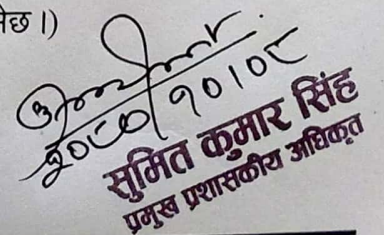 नेछ ।)
२०८०।१०।०८
सुमित कुमार सिंह
प्रमुख प्रशासकीय अधिकृत